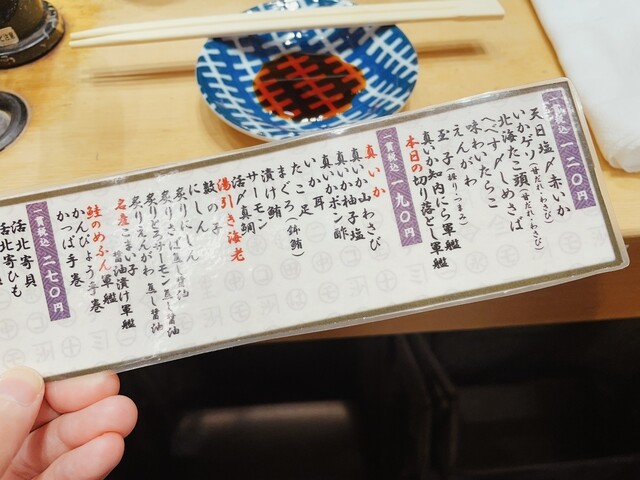 一貫税込 一二〇円
天日塩〆赤いか
いかゲソ(甘だれ・わさび)
北海たこ頭(甘だれ・わさび)
へべす〆しめさば
味わいたらこ
えんがわ
玉子(握り・つまみ)
真いか知内にら軍艦
本日の切り落とし軍艦
一貫税込 一九〇円
真いか
真いか山わさび
真いか柚子塩
真いかポン酢
いか耳
たこ足
まぐろ(鉢鮪)
漬け鮪
サーモン
活〆真鯛
湯引き海老
数の子
にしん
炙りにしん
炙りさば蒸し醤油
炙りとろサーモン蒸し醤油
炙りえんがわ蒸し醤油
名産こまい子醤油漬け軍艦
鮭のめふん軍艦
かんぴょう手巻
かっぱ手巻
一貫税込 二七〇円
活北寄貝
活北寄ひも